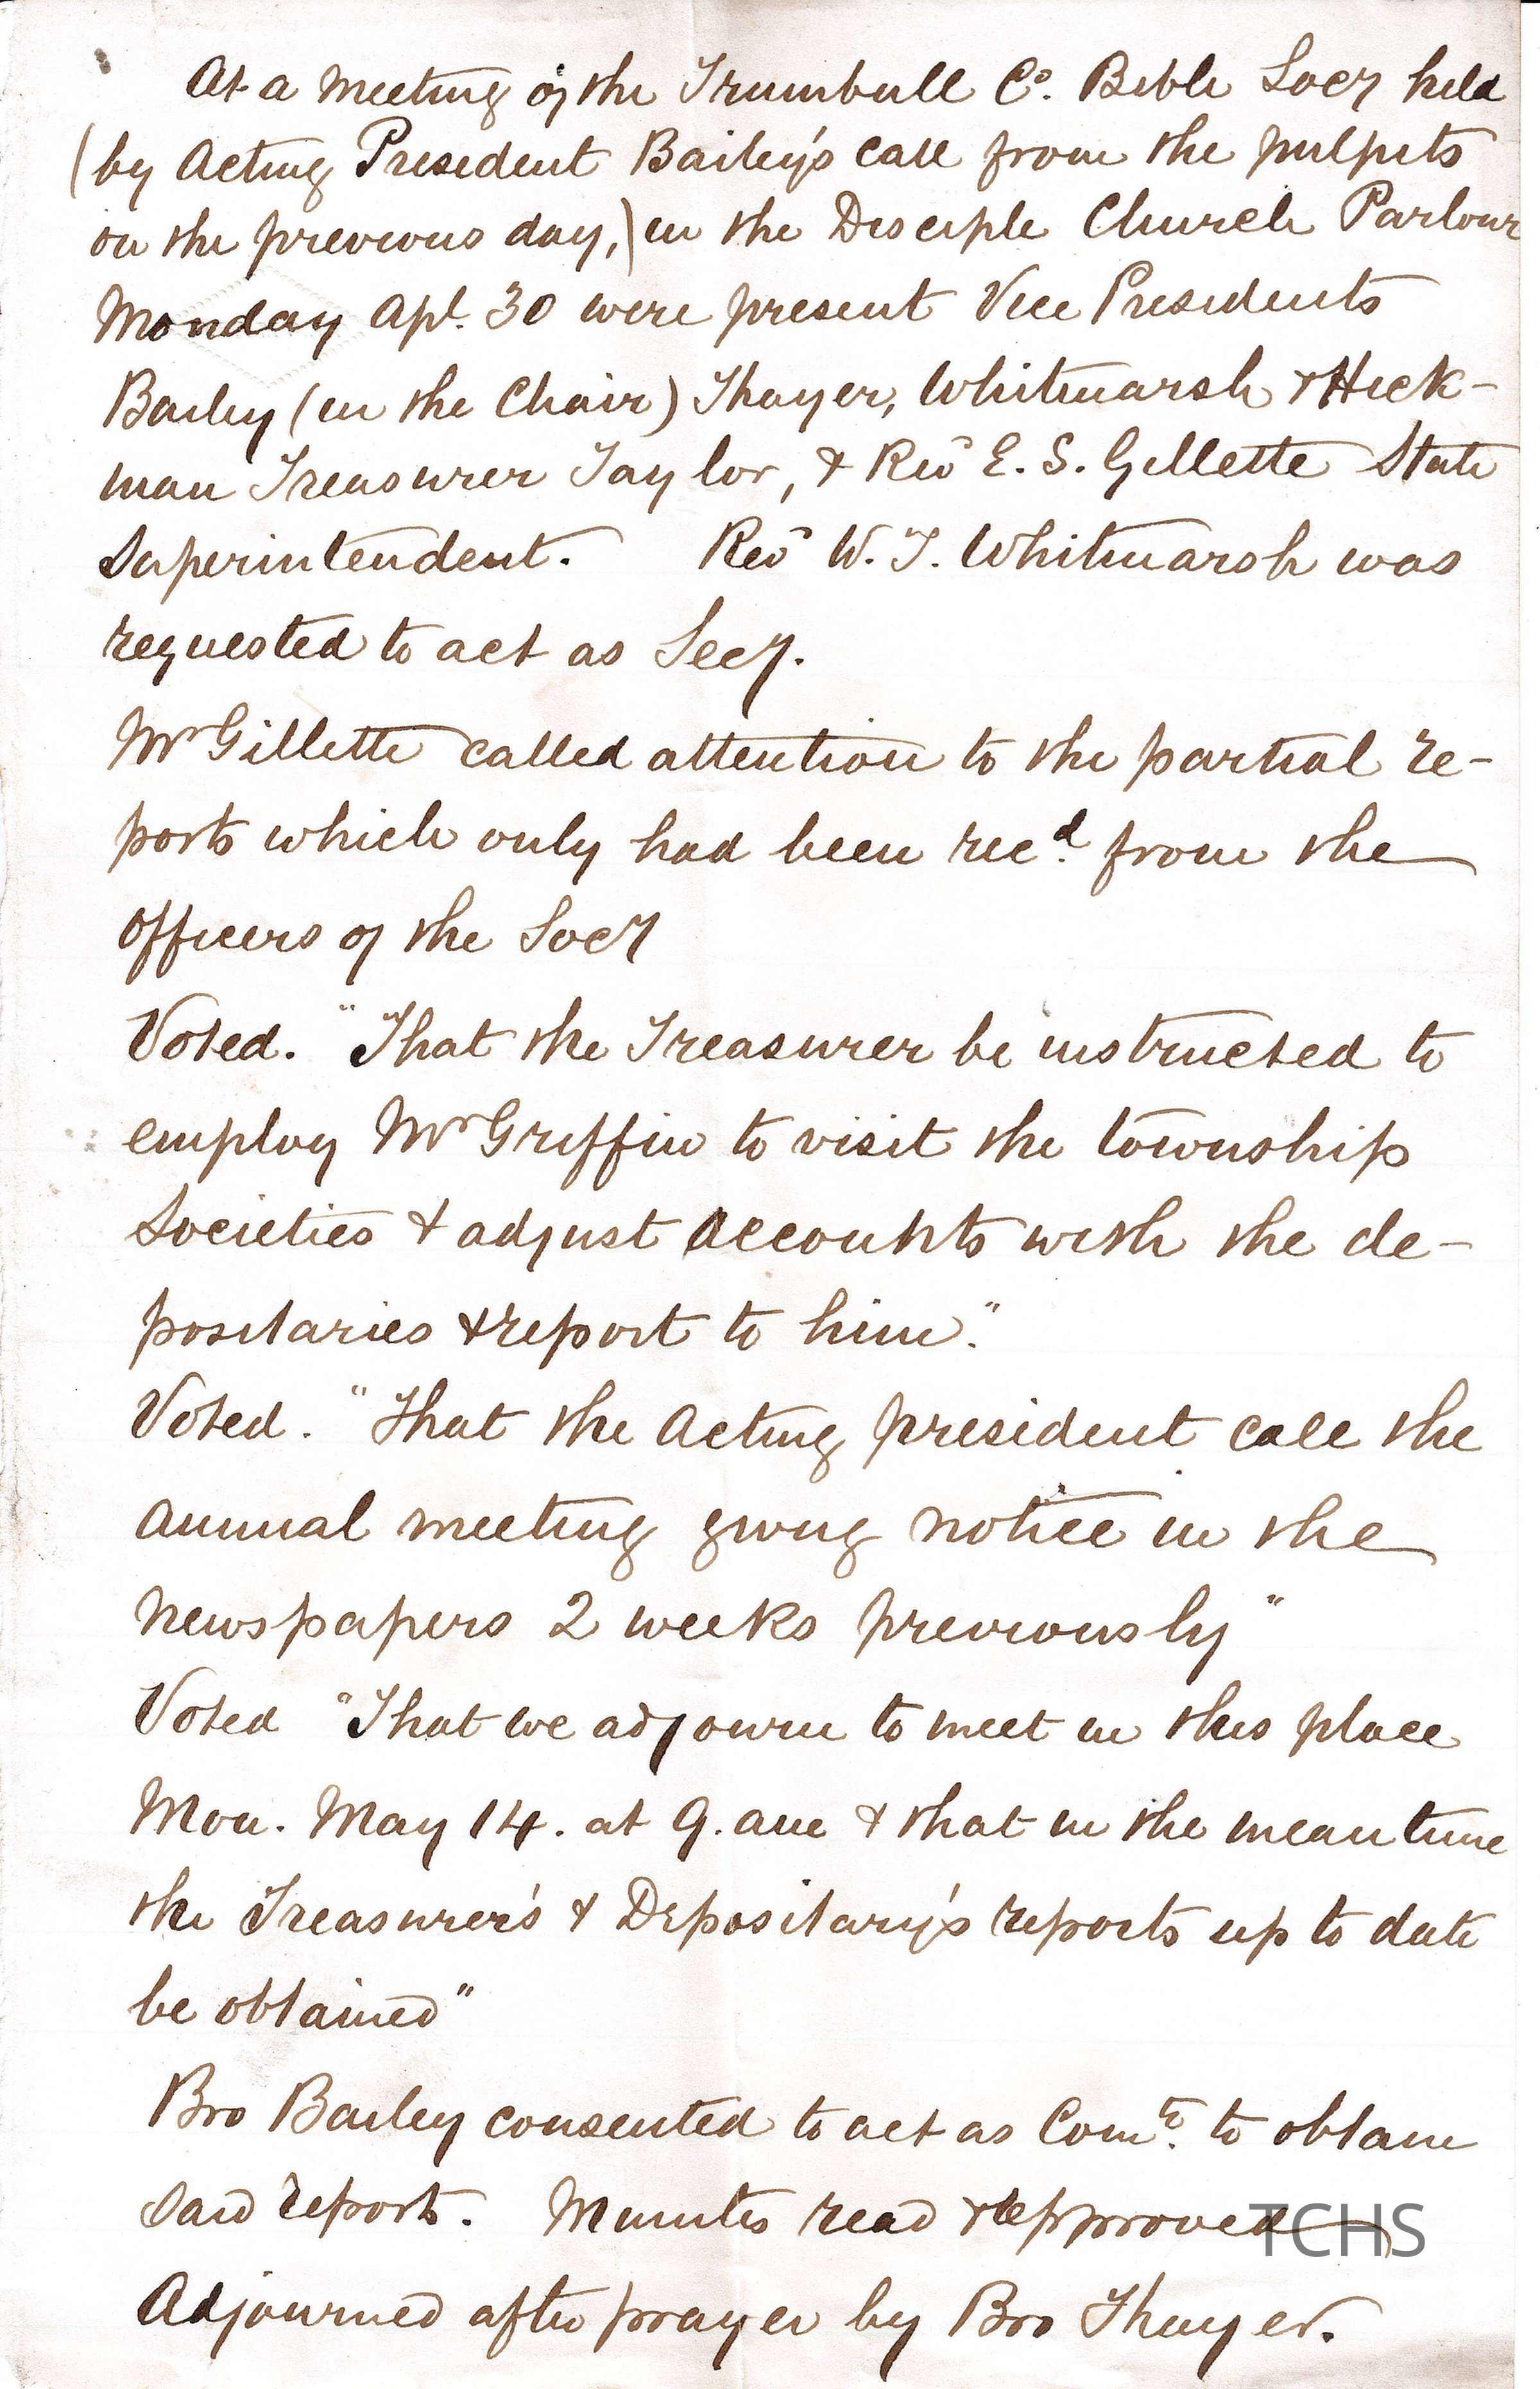 At a meeting of the Trumbull Co. Bible Socy held
(by Acting President Bailey's call from the pulpits
on the previous day,) in the Disciple Church Parlour
Monday Apl. 30 were present Vice Presidents
Bailey (in the Chair) Thayer, Whitmarsh & Hick-
man Treasurer Taylor, & Rev E. S. Gillette State
Superintendent. Rev W. T. Whitmarsh was
requested to act as Secy.
Mr Gillette called attention to the partial re-
ports which only had been recd. from the
officers of the Socy
Voted. "That the Treasurer be instructed to
employ Mr Griffin to visit the township
Societies & adjust accounts with the de-
positaries & report to him."
Voted. "That the Acting president call the
annual meeting giving notice in the
newspapers 2 weeks previously"
Voted "That we adjourn to meet in this place
Mon. May 14. at 9. am & that in the mean time
the Treasurer's & Depositary's reports up to date
be obtained"
Bro Bailey consented to act as Comte. to obtain
said reports. Minutes read & approved
TCHS
Adjourned after prayer by Bro Thayer.